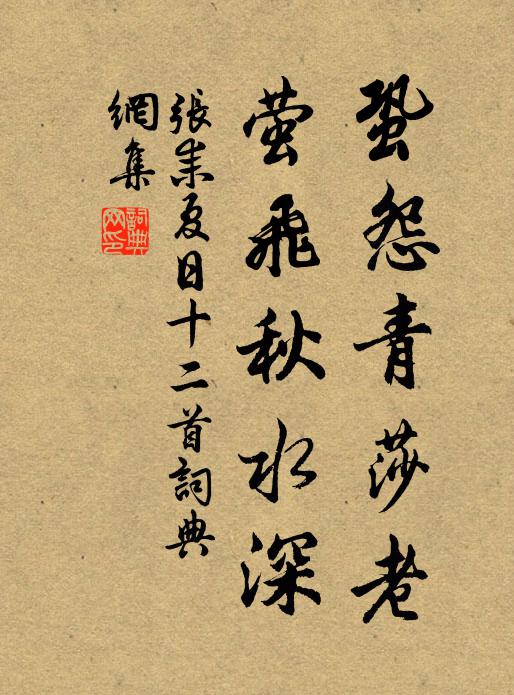 蛩怨青莎老
萤飛秋水深
張耒夏日十二首詞典
網集
詞典
网印